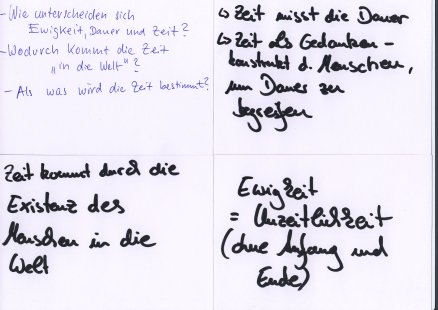 - Wie unterscheiden sich
Ewigkeit, Dauer und Zeit?
- Wodurch kommt die Zeit
"in die Welt"?
- Als was wird die Zeit bestimmt?
↳ Zeit misst die Dauer
↳ Zeit als Gedanken-
konstrukt d. Menschen,
um Dauer zu
begreifen
Zeit kommt durch die
Existenz des
Menschen in die
Welt
Ewigkeit
= Unzeitlichkeit
(ohne Anfang und
Ende)